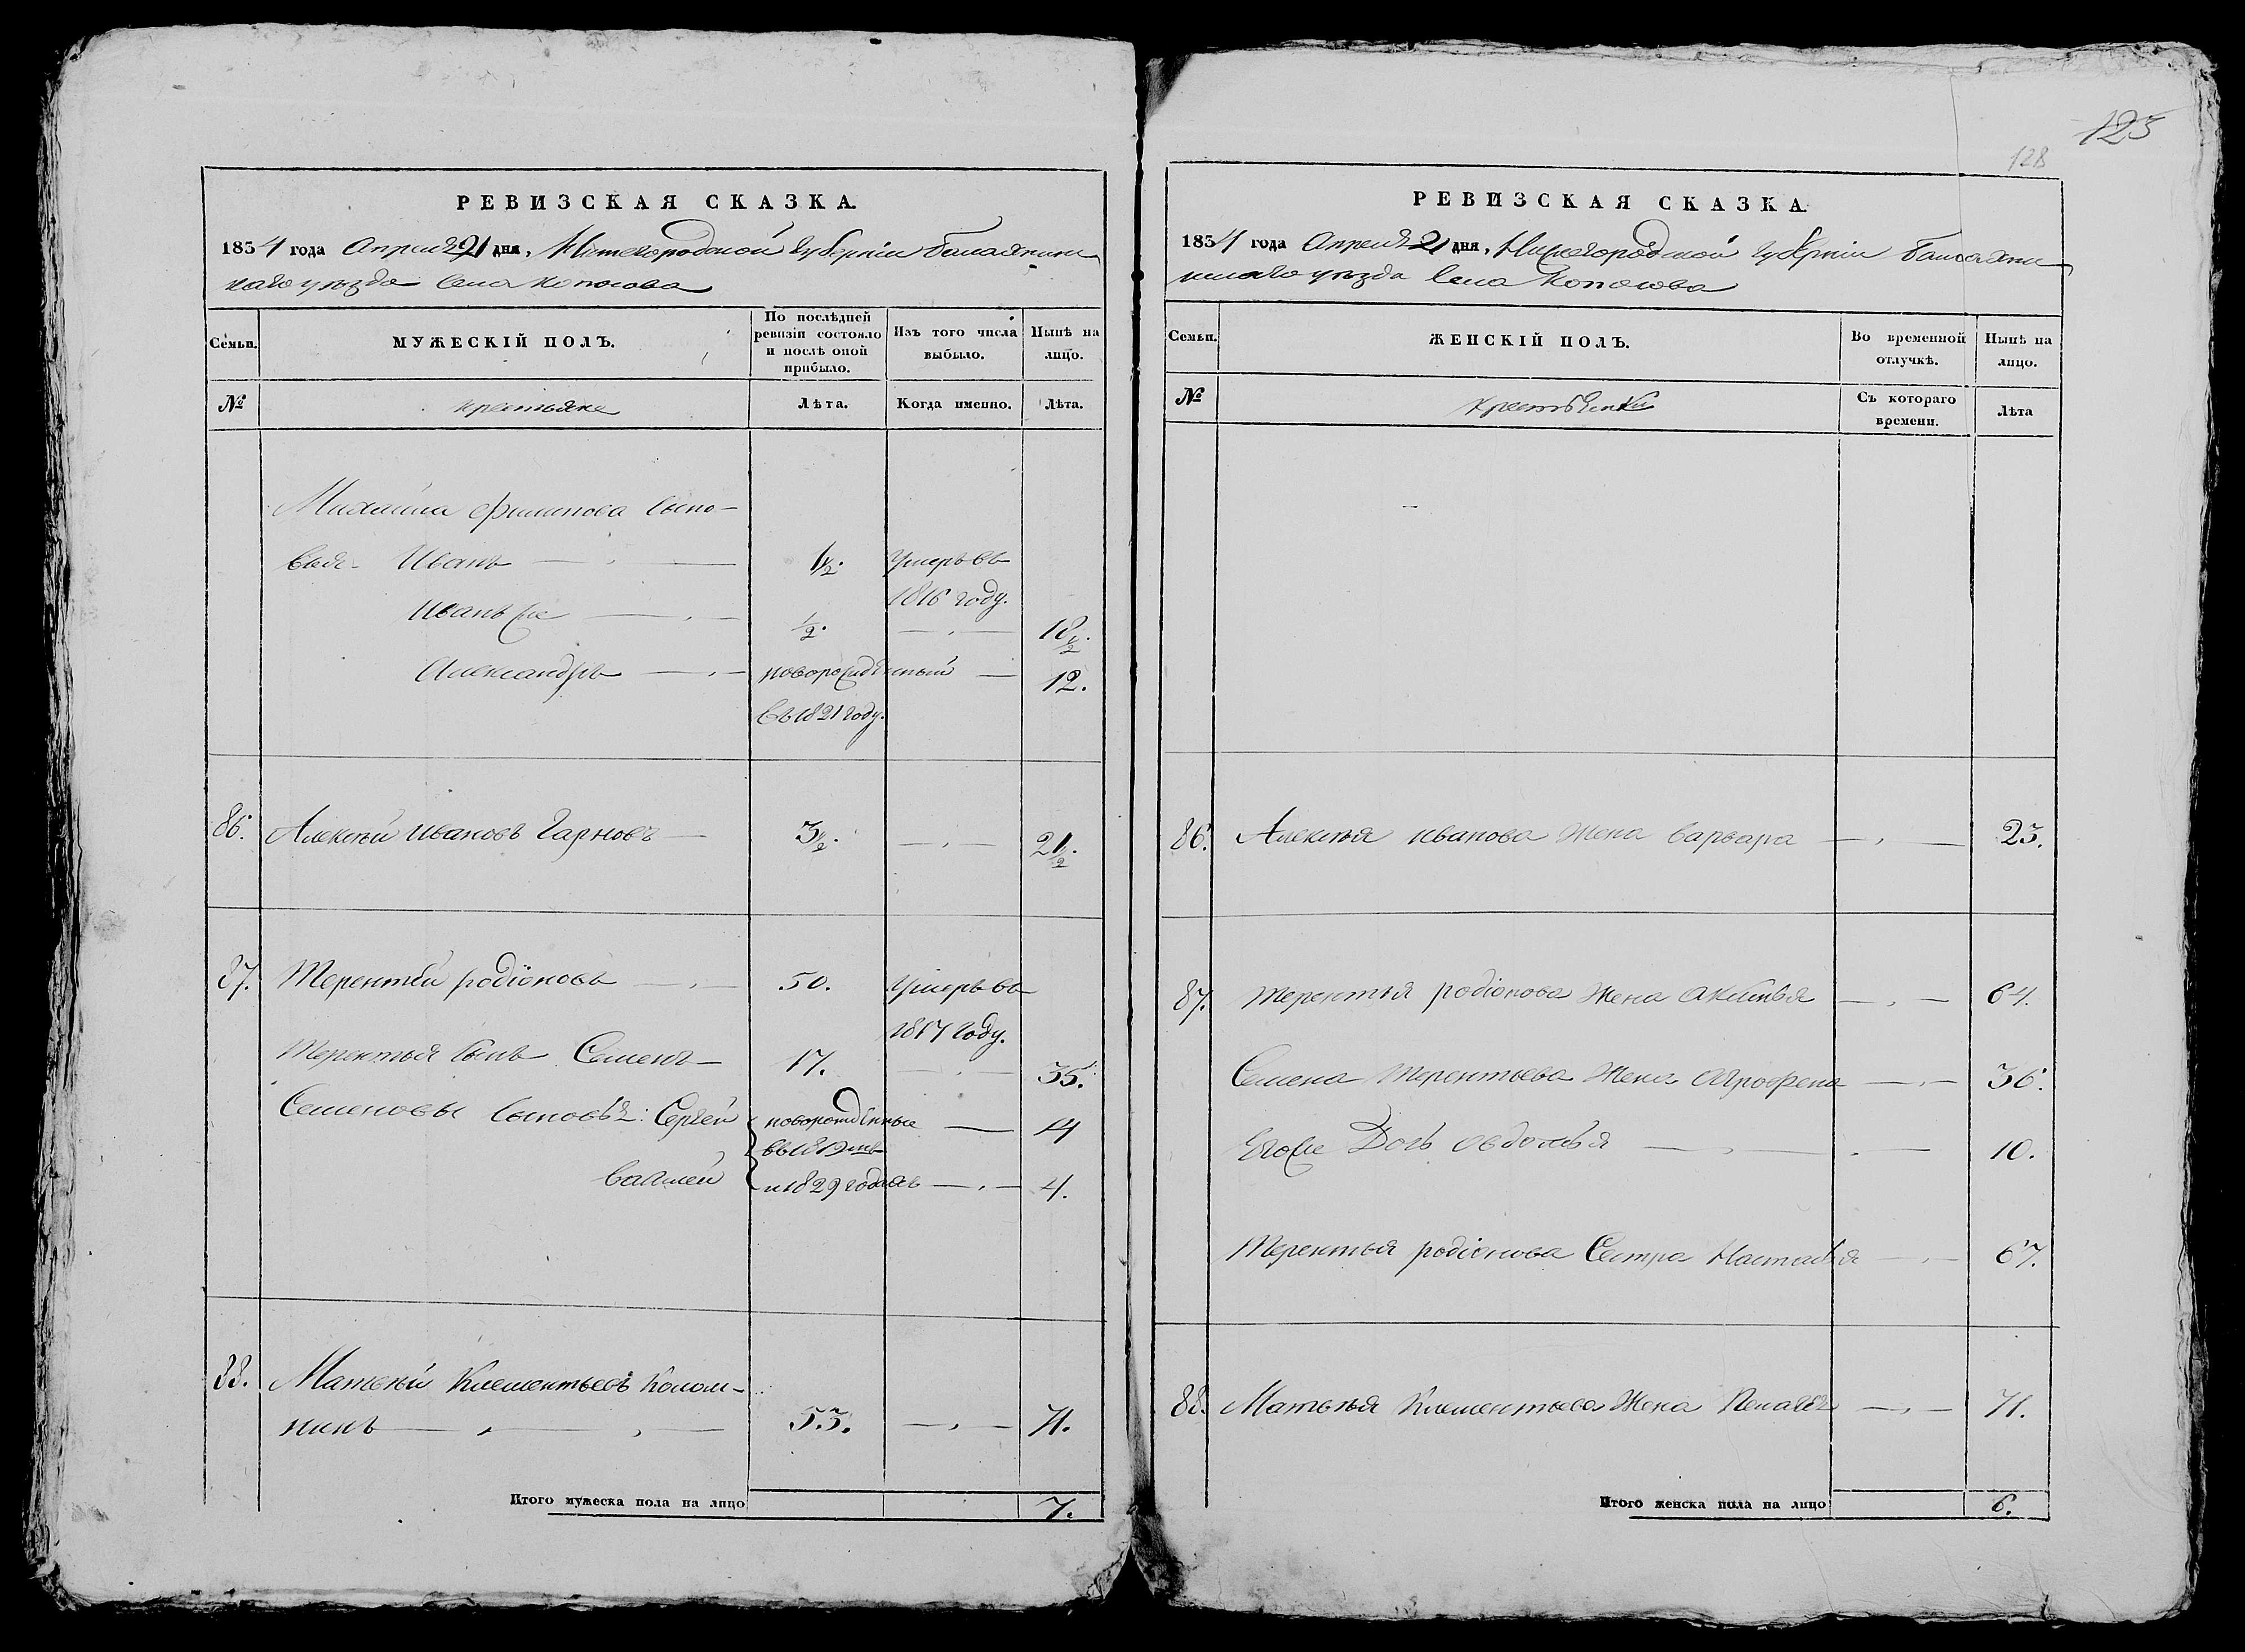 РЕВИЗСКАЯ СКАЗКА.
1834 года Апреля 21 дня, Нижегородской губерніи Балахнин
скаго уѣзда Села Копосова
Семьи. МУЖЕСКІЙ ПОЛЪ. По послѣдней ревизіи состояло и послѣ оной прибыло. Изъ того числа выбыло. Нынѣ на лицо.
№ крестьяне Лѣта. Когда именно. Лѣта.
Михайла Филипова сыно-
вья Иванъ 1½. Умеръ въ
1816 году.
Иванъ же ½. 18½.
Александръ новорожденный 12.
въ 1821 году.
86. Алексѣй Ивановъ 3½. 21½.
87. Терентей родіоновъ 50. Умеръ въ
1817 году.
Терентья сынъ Семенъ 17. 35.
Семеновы сыновья: Сергей новорожденные 14
въ 1819мъ
Василей и 1829 годахъ 4.
88. Матвѣй Клементьевъ Колом-
нинъ 53. 71.
Итого мужеска пола на лицо 7.
125
128
РЕВИЗСКАЯ СКАЗКА.
1834 года Апреля 21 дня, Нижегородской губерніи Балахни
нскаго уѣзда Села Копосова
Семьи. ЖЕНСКІЙ ПОЛЪ. Во временной отлучкѣ. Нынѣ на лицо.
№ крестьянки Съ котораго времени. Лѣта
86. Алексѣя Иванова Жена Варвара 23.
87. Терентья родіонова Жена Акилина 64.
Семена Терентьева Жена Аграфена 36.
Его же Дочь Овдотья 10.
Терентья родіонова Сестра Настасья 67.
88. Матвѣя Клементьева Жена Пелагея 71.
Итого женска пола на лицо 6.